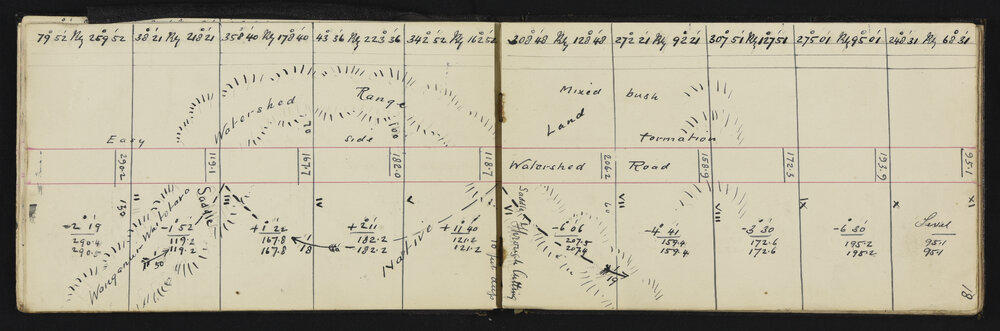 79° 52' Rly 259° 52' 38° 21' Rly 218° 21' 358° 40' Rly 178° 40' 43° 36' Rly 223° 36' 342° 52' Rly 162° 52'
308° 48' Rly 128° 48' 272° 21' Rly 92° 21' 307° 51' Rly 127° 51' 275° 01' Rly 95° 01' 248° 31' Rly 68° 31'
Watershed Range
Easy side
70 100
Mixed bush
Land formation
290.2 119.1 167.7 182.0 118.7
Watershed Road
206.2 158.9 172.5 193.9 95.1
130 II III IV V
VI 60 VII VIII IX X XI
Wanganui Waitotara
Saddle
Native
-2° 19'
290.4
290.5
-1° 52'
119.2
119.2
+1° 22'
167.8
167.8
18
+2° 11'
182.2
182.2
+11° 40'
121.2
121.2
10 feet deep
Saddle through Cutting
-6° 06'
207.5
207.4
19
-4° 41'
159.4
159.4
-3° 30'
172.6
172.6
-6° 30'
195.2
195.2
Level
95.1
95.1
18